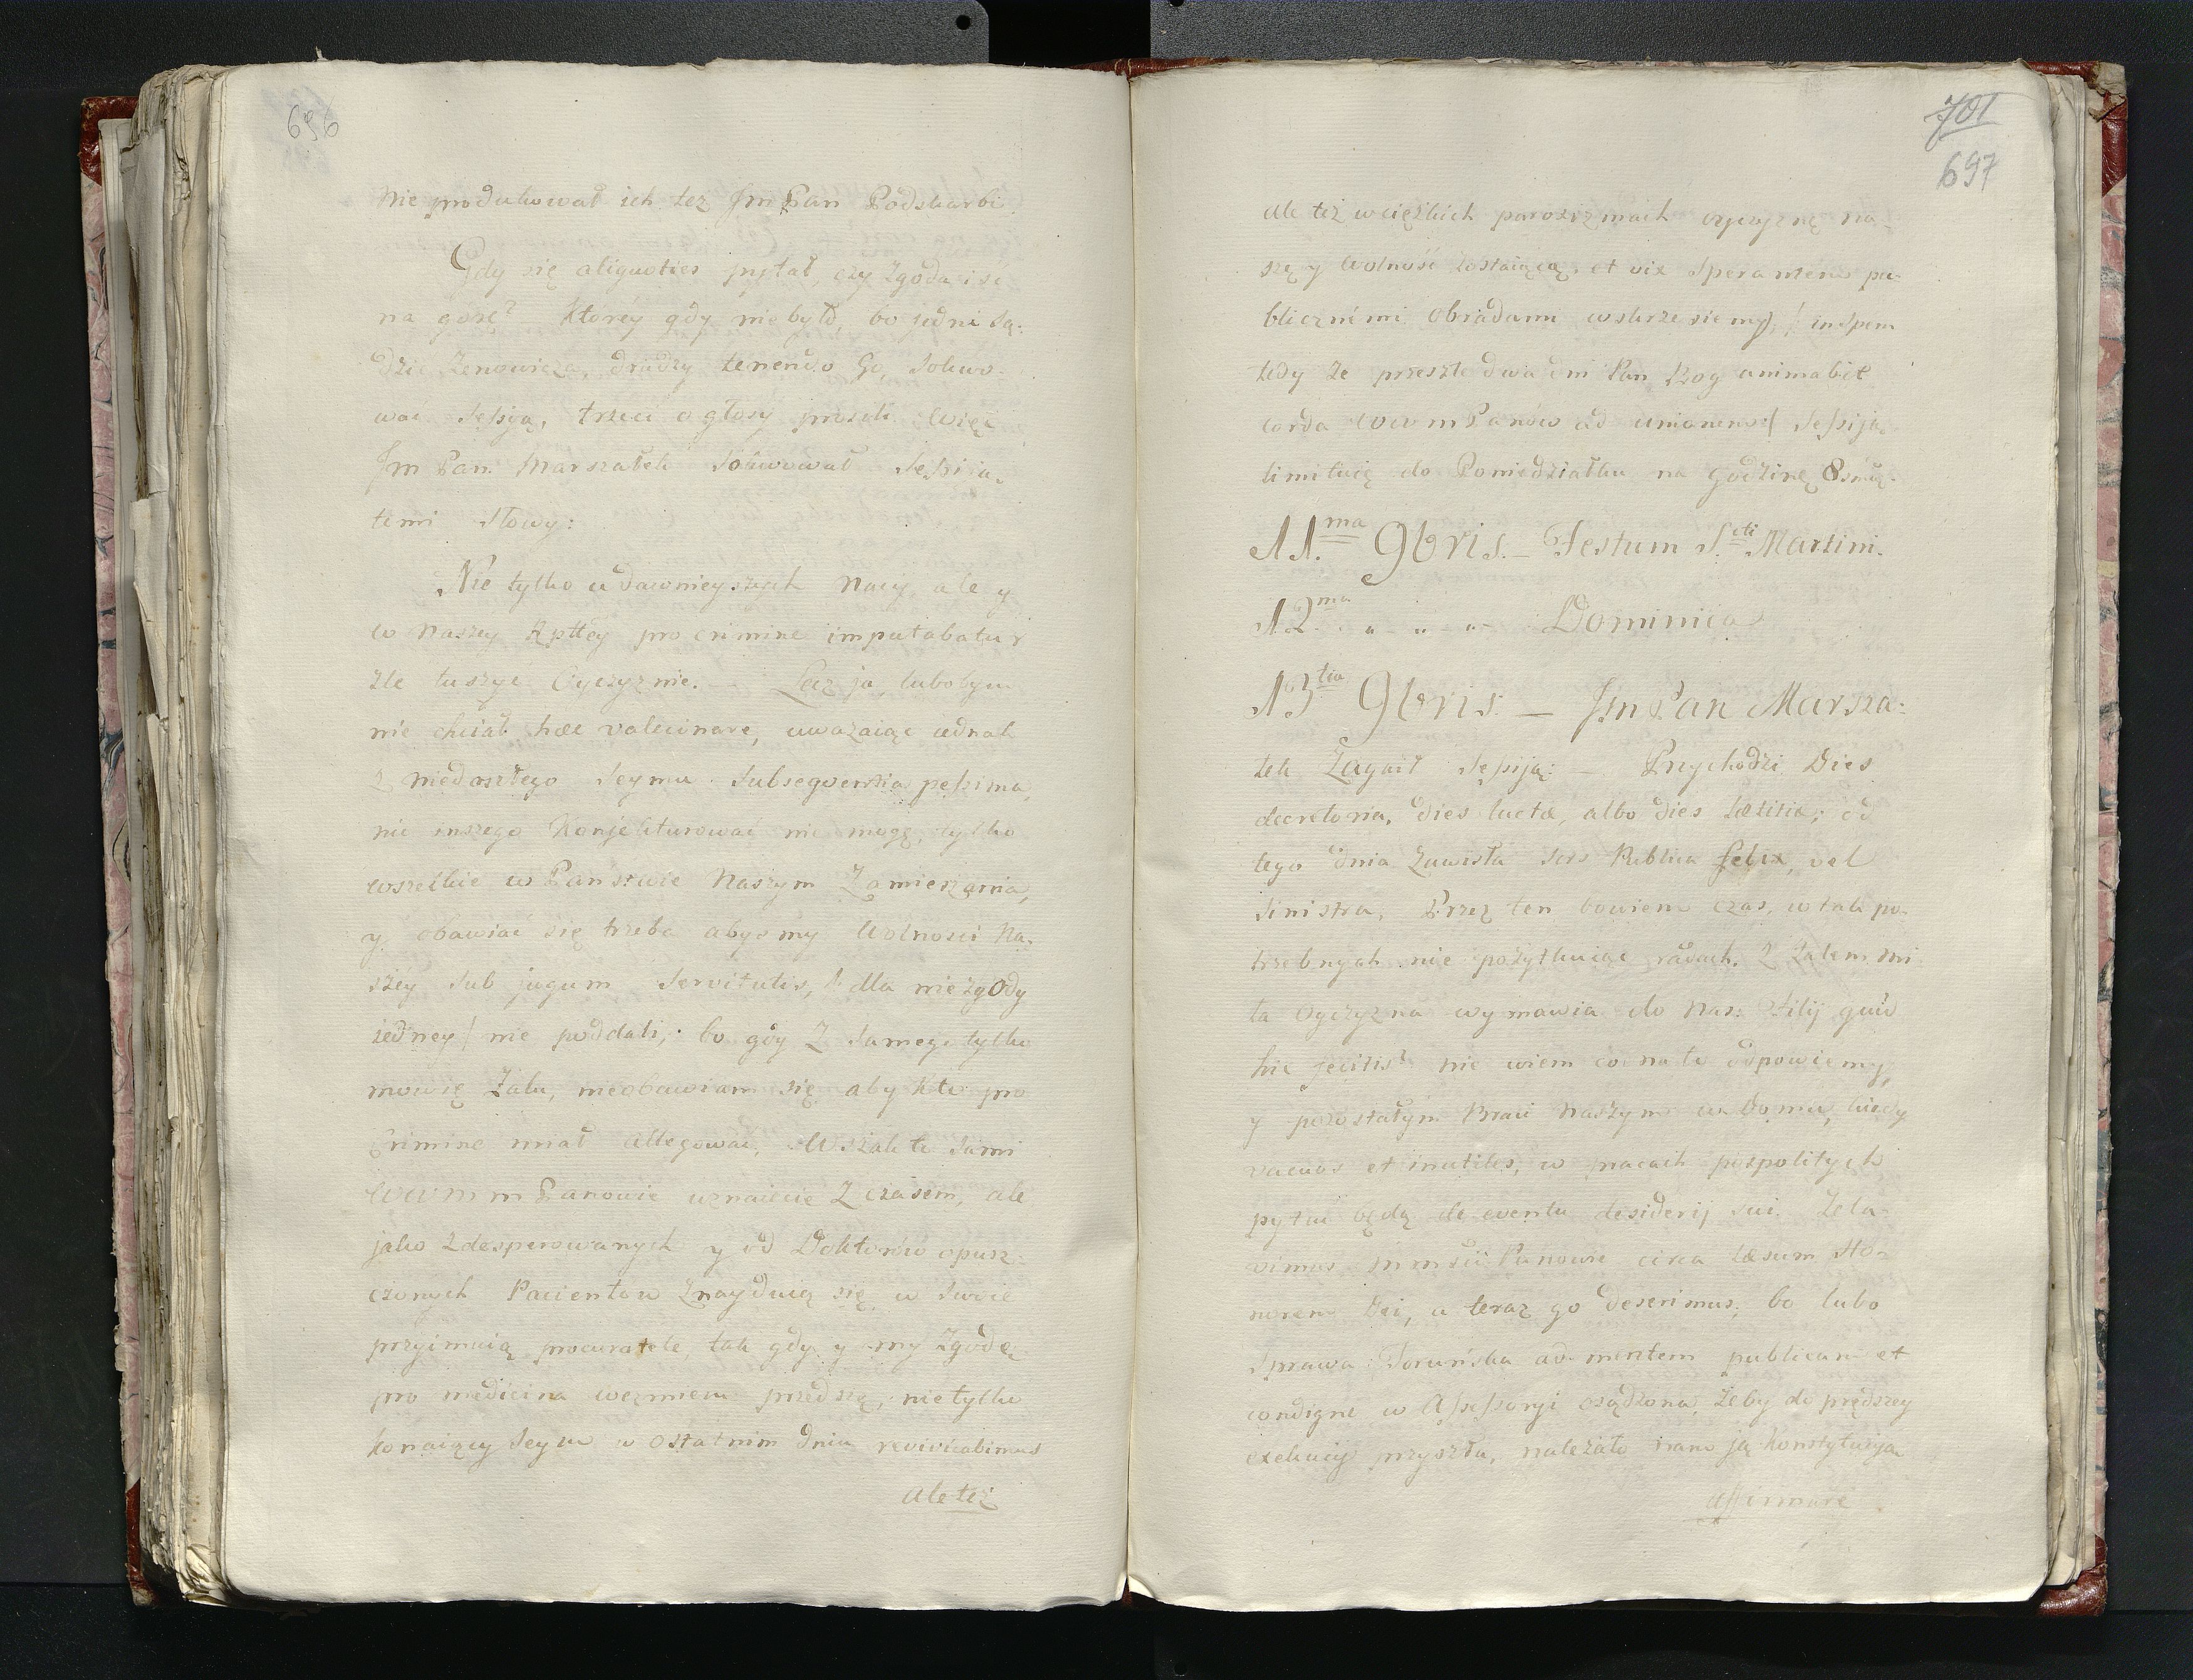 696
nie produkował ich też Jm Pan Podskarbi.
Gdy się aliquoties pytał, czy zgoda iść
na górę? Którey gdy nie było, bo jedni Są-
dzić Zenowicza, drudzy tenendo Go, Solwo-
wać Sessyą, trzeci o głosy prosili. Więc
Jm Pan Marszałek Solwował Sessią.
temi słowy:
Nie tylko u dawnieyszych Nacy, ale y
w naszey Rpttey pro crimine imputabatur
zle tuszyć Oyczyznie. – Lecz ja, lubobym
nie chciał hæc vaticinare, uważaiąc iednak
z niedoszłego Seymu Subsequentia pessima,
nic inszego Konjekturować nie mogę, tylko
wszelkie w Państwie Naszym Zamieszania,
y obawiać się trzeba abysmy Wolności Na-
széy Sub jugum Servitutis, /: dla niezgody
iedney / nie poddali; bo gdy z Samego tylko
mowię Żalu, nieobawiam się aby kto pro
Crimine miał allegować. Wszak to Sami
WWmm Panowie uznaiecie z czasem, ale
jako zdesperowanych y od Doktorów opusz-
czonych Pacientow znayduią się, w Swoie
przyimuią procuratele, tak gdy y my Zgodę
pro medicina wezmiem przedsię, nie tylko
konaiący Seym w ostatnim dniu revivicabimus
ale też
701
697
ale też w ciężkich paroxizmach oyczyznę na-
szę y Wolność zostaiącą, et vix Spirantem pu-
blicznémi Obradami wskrzesiemy, / in Spem
tedy że przeszłe dwa dni Pan Bog animabit
corda WWm Panów ad unionem / Sessiją
limituię do Poniedziałku na godzinę 8smą.
11.ma 9bris. – Festum S.cti Martini.
12ma „ „ „ Dominica
13tia 9bris. – Jm Pan Marsza-
łek Zagaił Sessiją: – Przychodzi Dies
decretoria, dies luctæ, albo dies lætitiæ; od
tego dnia zawisła sors Publica felix, vel
Sinistra, Przez ten bowiem czas, w tak po-
trzebnych nie pożytkuiąc radach. Z żalem mi
ta Oyczyzna wymawia do nas: Filij quid
hic fecitis? nie wiem co na to odpowiemy,
y pozostałym Braci Naszym w Domu, kiedy
vacuos et inutiles, w pracach pospolitych
pytać będą de eventu desiderij sui. Zela-
vimus Jmscii Panowie circa læsum Ho-
norem Dei, a teraz go deserimus; bo lubo
Sprawa Toruńska ad mentem publicam et
condigne w Assessoryi osądzona, żeby do prędszey
exekucij przyszła, należało nam ją Konstytucyą
affirmare